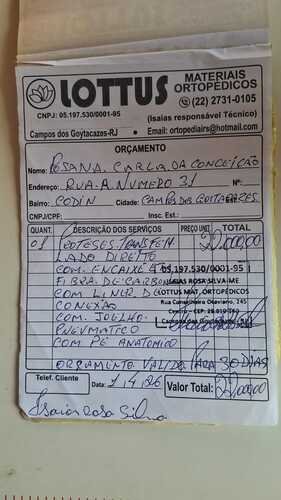 LOTTUS
MATERIAIS
ORTOPÉDICOS
(22) 2731-0105
CNPJ: 05.197.530/0001-95
(Isaias responsável Técnico)
Campos dos Goytacazes-RJ • Email: ortopediairs@hotmail.com
ORÇAMENTO
Nome: ROSANA CARLA DA CONCEIÇÃO
Endereço: RUA A NUMERO 31 Nº
Bairro: CODIN Cidade: CAMPOS DOS GOITACAZES
CNPJ/CPF: Insc. Est.:
QUANT. DESCRIÇÃO DOS SERVIÇOS PREÇO UNIT. TOTAL
01 PROTESES TRANSFEM
LADO DIREITO
COM ENCAIXE 05.197.530/0001-95
FIBRA DE CARBONO ISAIAS ROSA SILVA-ME
COM LINER DE LOTTUS MAT. ORTOPÉDICOS
CONEXÃO Rua Conselheiro Otaviano, 145
Centro - CEP:
COM JOELHO Campos dos Goytacazes
PNEUMATICO
COM PÉ ANATOMICO
ORÇAMENTO VALIDO PARA 30 DIAS
Telef. Cliente
Data: Valor Total:
Isaias Rosa Silva